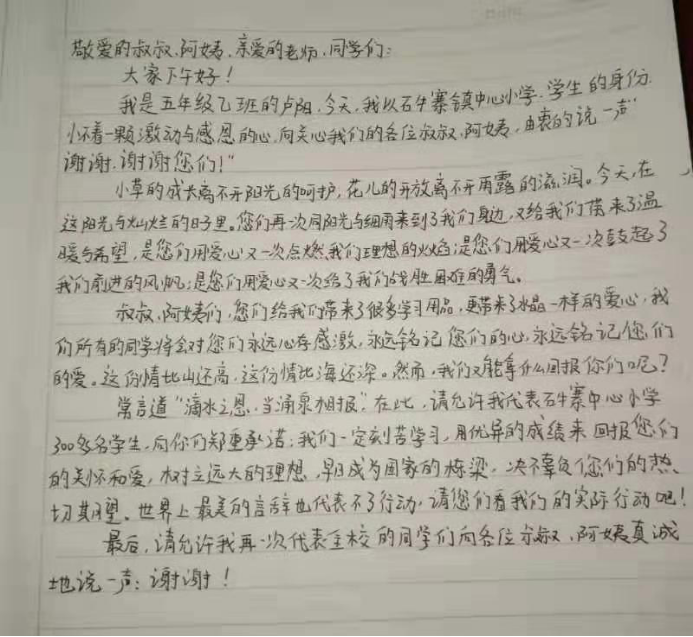 敬爱的叔叔、阿姨、亲爱的老师、同学们：
大家下午好！
我是五年级乙班的卢阳、今天，我以石牛寨镇中心小学、学生的身份
怀着一颗激动与感恩的心，向关心我们的各位叔叔、阿姨，由衷的说一声“
谢谢、谢谢您们！”
小草的成长离不开阳光的呵护，花儿的开放离不开雨露的滋润。今天，在
这阳光与灿烂的日子里。您们再次同阳光与细雨来到了我们身边，又给我们带来了温
暖与希望，是您们用爱心又一次点燃我们理想的火焰；是您们用爱心又一次鼓起了
我们前进的风帆；是您们用爱心又一次给了我们战胜困难的勇气。
叔叔、阿姨们，您们给我们带来了很多学习用品，更带来了水晶一样的爱心，我
们所有的同学将会对您们永远心存感激，永远铭记您们的心，永远铭记您们
的爱。这份情比山还高，这份情比海还深。然而，我们又能拿什么回报你们呢？
常言道“滴水之恩，当涌泉相报”，在此，请允许我代表石牛寨中心小学
300多名学生，向你们郑重承诺：我们一定刻苦学习，用优异的成绩来回报您们
的关怀和爱，树立远大的理想，早日成为国家的栋梁，决不辜负您们的热
切期望。世界上最美的言辞也代表不了行动，请您们看我们的实际行动吧！
最后，请允许我再一次代表全校的同学们向各位叔叔、阿姨真诚
地说一声：谢谢！